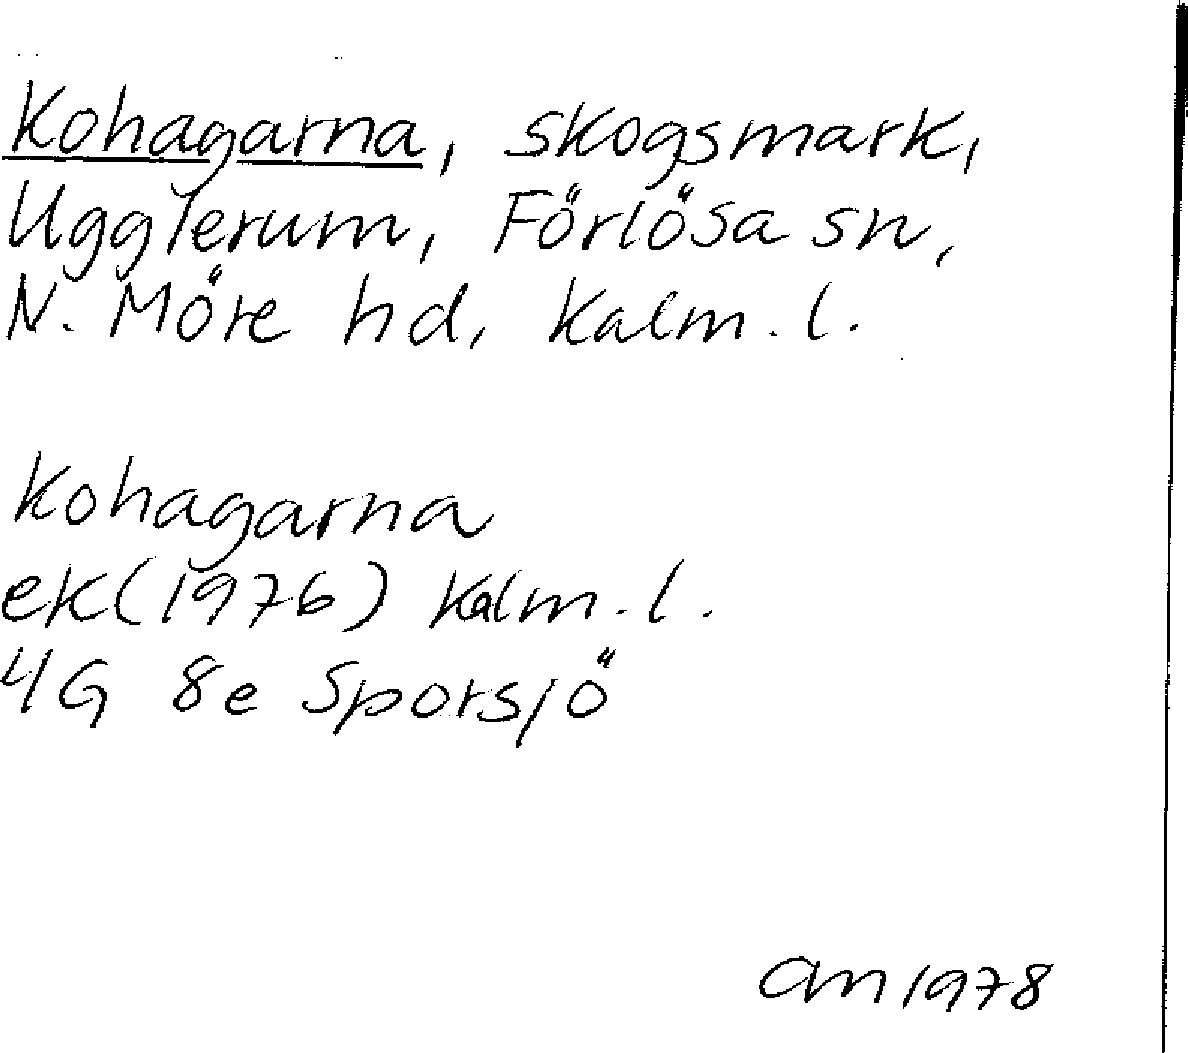 Kohagarna, skogsmark,
Ugglerum, Förlösa sn,
N. Möre hd, Kalm. l.
Kohagarna
ek (1976) Kalm. l.
4G 8e Sporsjö
am 1978